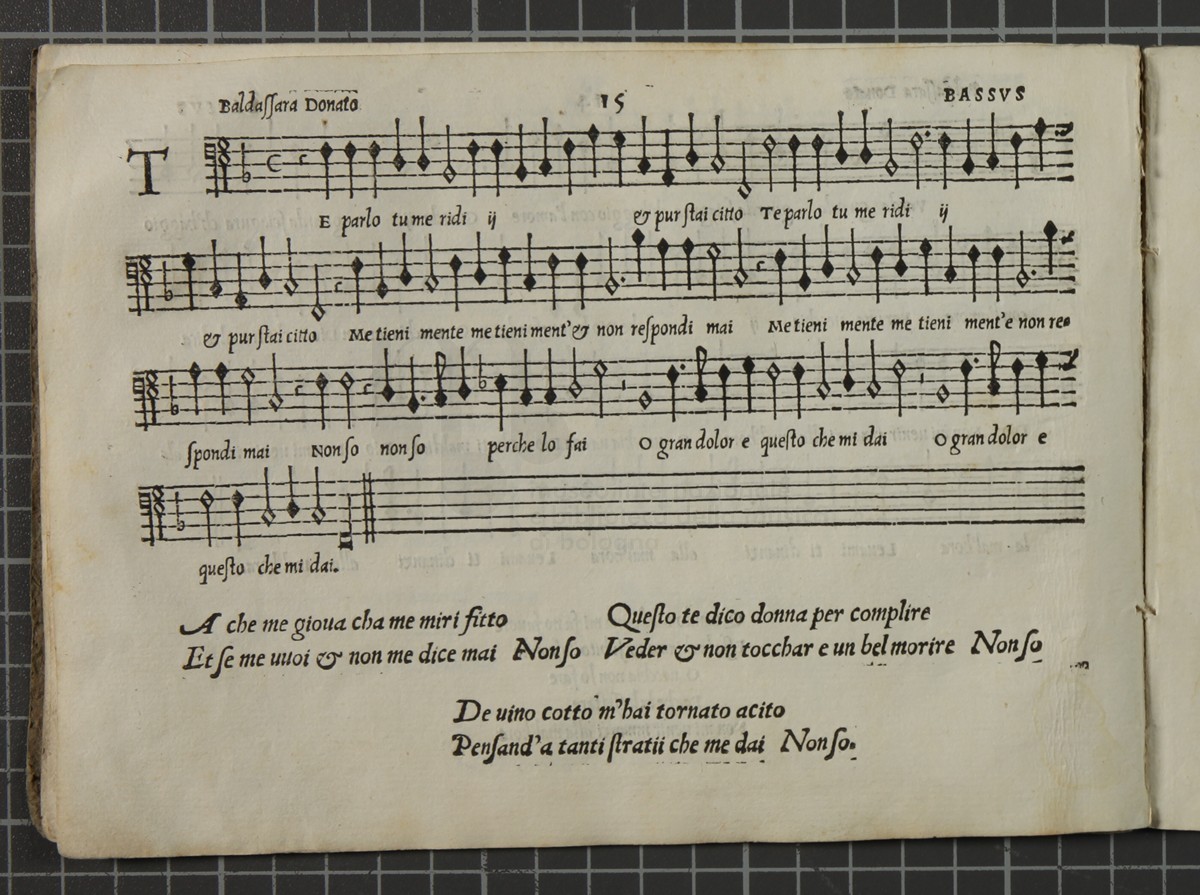 Baldaſſara Donato 15 BASSVS
TE parlo tu me ridi ij & pur ſtai citto Te parlo tu me ridi ij
& pur ſtai citto Me tieni mente me tieni ment'& non reſpondi mai Me tieni mente me tieni ment'e non re⸗
ſpondi mai Non ſo non ſo perche lo fai O gran dolor e queſto che mi dai O gran dolor e
queſto che mi dai.
A che me gioua cha me miri fitto
Et ſe me uuoi & non me dice mai Non ſo
Queſto te dico donna per complire
Veder & non tocchar e un bel morire Non ſo
De uino cotto m'hai tornato acito
Penſand'a tanti ſtratii che me dai Non ſo.